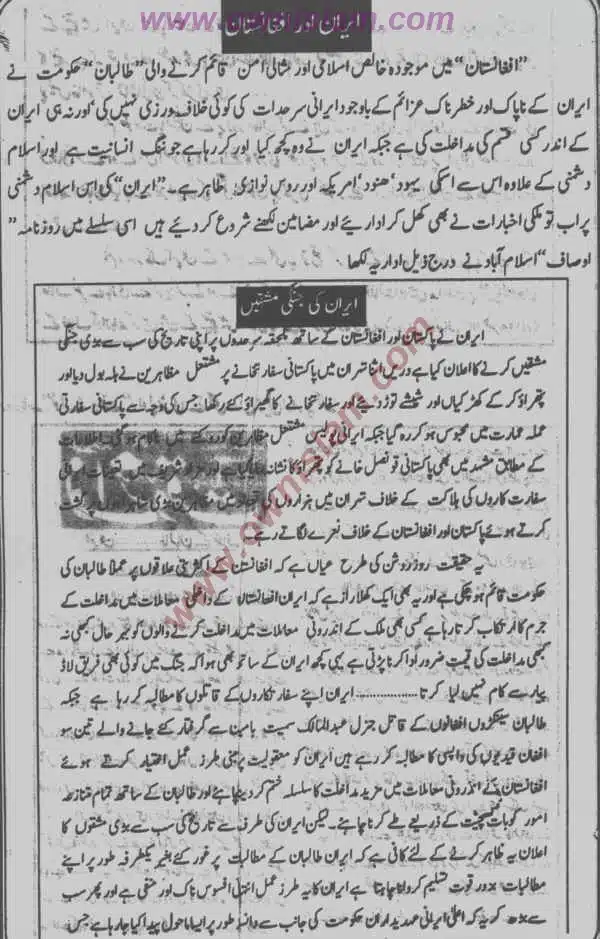 www.ownislam.com
ایران اور افغانستان
"افغانستان" میں موجودہ خالص اسلامی اور مثالی امن قائم کرنے والی "طالبان" حکومت نے
ایران کے ناپاک اور خطرناک عزائم کے باوجود ایرانی سرحدات کی کوئی خلاف ورزی نہیں کی' اور نہ ہی ایران
کے اندر کسی قسم کی مداخلت کی ہے جبکہ ایران نے وہ کچھ کیا اور کر رہا ہے جو ننگ انسانیت ہے اور اسلام
دشمنی کے علاوہ اس سے اسکی یہود' ہنود' امریکہ اور روس نوازی ظاہر ہے۔ "ایران" کی اس اسلام دشمنی
پر اب تو ملکی اخبارات نے بھی کھل کر اداریے اور مضامین لکھنے شروع کر دیئے ہیں اسی سلسلے میں روزنامہ "
اوصاف" اسلام آباد نے درج ذیل اداریہ لکھا۔
ایران کی جنگی مشقیں
ایران نے پاکستان اور افغانستان کے ساتھ ملحقہ سرحدوں پر اپنی تاریخ کی سب سے بڑی جنگی
مشقیں کرنے کا اعلان کیا ہے دریں اثنا تہران میں پاکستانی سفارتخانے پر مشتعل مظاہرین نے ہلہ بول دیا اور
پتھراؤ کر کے کھڑکیاں اور شیشے توڑ دیئے اور سفارتخانے کا گھیراؤ کئے رکھا جس کی وجہ سے پاکستانی سفارتی
عملہ عمارت میں محبوس ہو کر رہ گیا جبکہ ایرانی پولیس مشتعل مظاہرین کو روکنے میں ناکام ہو گئی۔ اطلاعات
کے مطابق مشہد میں بھی پاکستانی قونصل خانے کو پتھراؤ کا نشانہ بنایا گیا ہے اور مزار شریف میں تعینات ایرانی
سفارت کاروں کی ہلاکت کے خلاف تہران میں ہزاروں کی تعداد میں مظاہرین بڑی شاہراہوں پر گشت
کرتے ہوئے پاکستان اور افغانستان کے خلاف نعرے لگاتے رہے۔
یہ حقیقت روز روشن کی طرح عیاں ہے کہ افغانستان کے اکثریتی علاقوں پر عملا طالبان کی
حکومت قائم ہو چکی ہے اور یہ بھی ایک کھلا راز ہے کہ ایران افغانستان کے داخلی معاملات میں مداخلت کے
جرم کا ارتکاب کرتا رہا ہے کسی بھی ملک کے اندرونی معاملات میں مداخلت کرنے والوں کو بہر حال کبھی نہ
کبھی مداخلت کی قیمت ضرور ادا کرنا پڑتی ہے یہی کچھ ایران کے ساتھ بھی ہوا کہ جنگ میں کوئی بھی فریق لاڈ
پیار سے کام نہیں لیا کرتا ................ ایران اپنے سفارتکاروں کے قاتلوں کا مطالبہ کر رہا ہے جبکہ
طالبان سینکڑوں افغانوں کے قاتل جنرل عبدالمالک سمیت بامین سے گرفتار کئے جانے والے تین سو
افغان قیدیوں کی واپسی کا مطالبہ کر رہے ہیں ایران کو معقولیت پر مبنی طرز عمل اختیار کرتے ہوئے
افغانستان کے اندرونی معاملات میں مزید مداخلت کا سلسلہ ختم کر دینا چاہئے اور طالبان کے ساتھ تمام متنازعہ
امور کو بات چیت کے ذریعے طے کرنا چاہئے۔ لیکن ایران کی طرف سے تاریخ کی سب سے بڑی مشقوں کا
اعلان یہ ظاہر کرنے کے لئے کافی ہے کہ ایران طالبان کے مطالبات پر غور کئے بغیر یکطرفہ طور پر اپنے
مطالبات بزور قوت تسلیم کروانا چاہتا ہے ایران کا یہ طرز عمل انتہائی افسوس ناک اور منفی ہے اور پھر سب
سے بڑھ کر یہ کہ اعلیٰ ایرانی عہدیداران حکومت کی جانب سے دانستہ طور پر ایسا ماحول پیدا کیا جا رہا ہے جس
www.ownislam.com